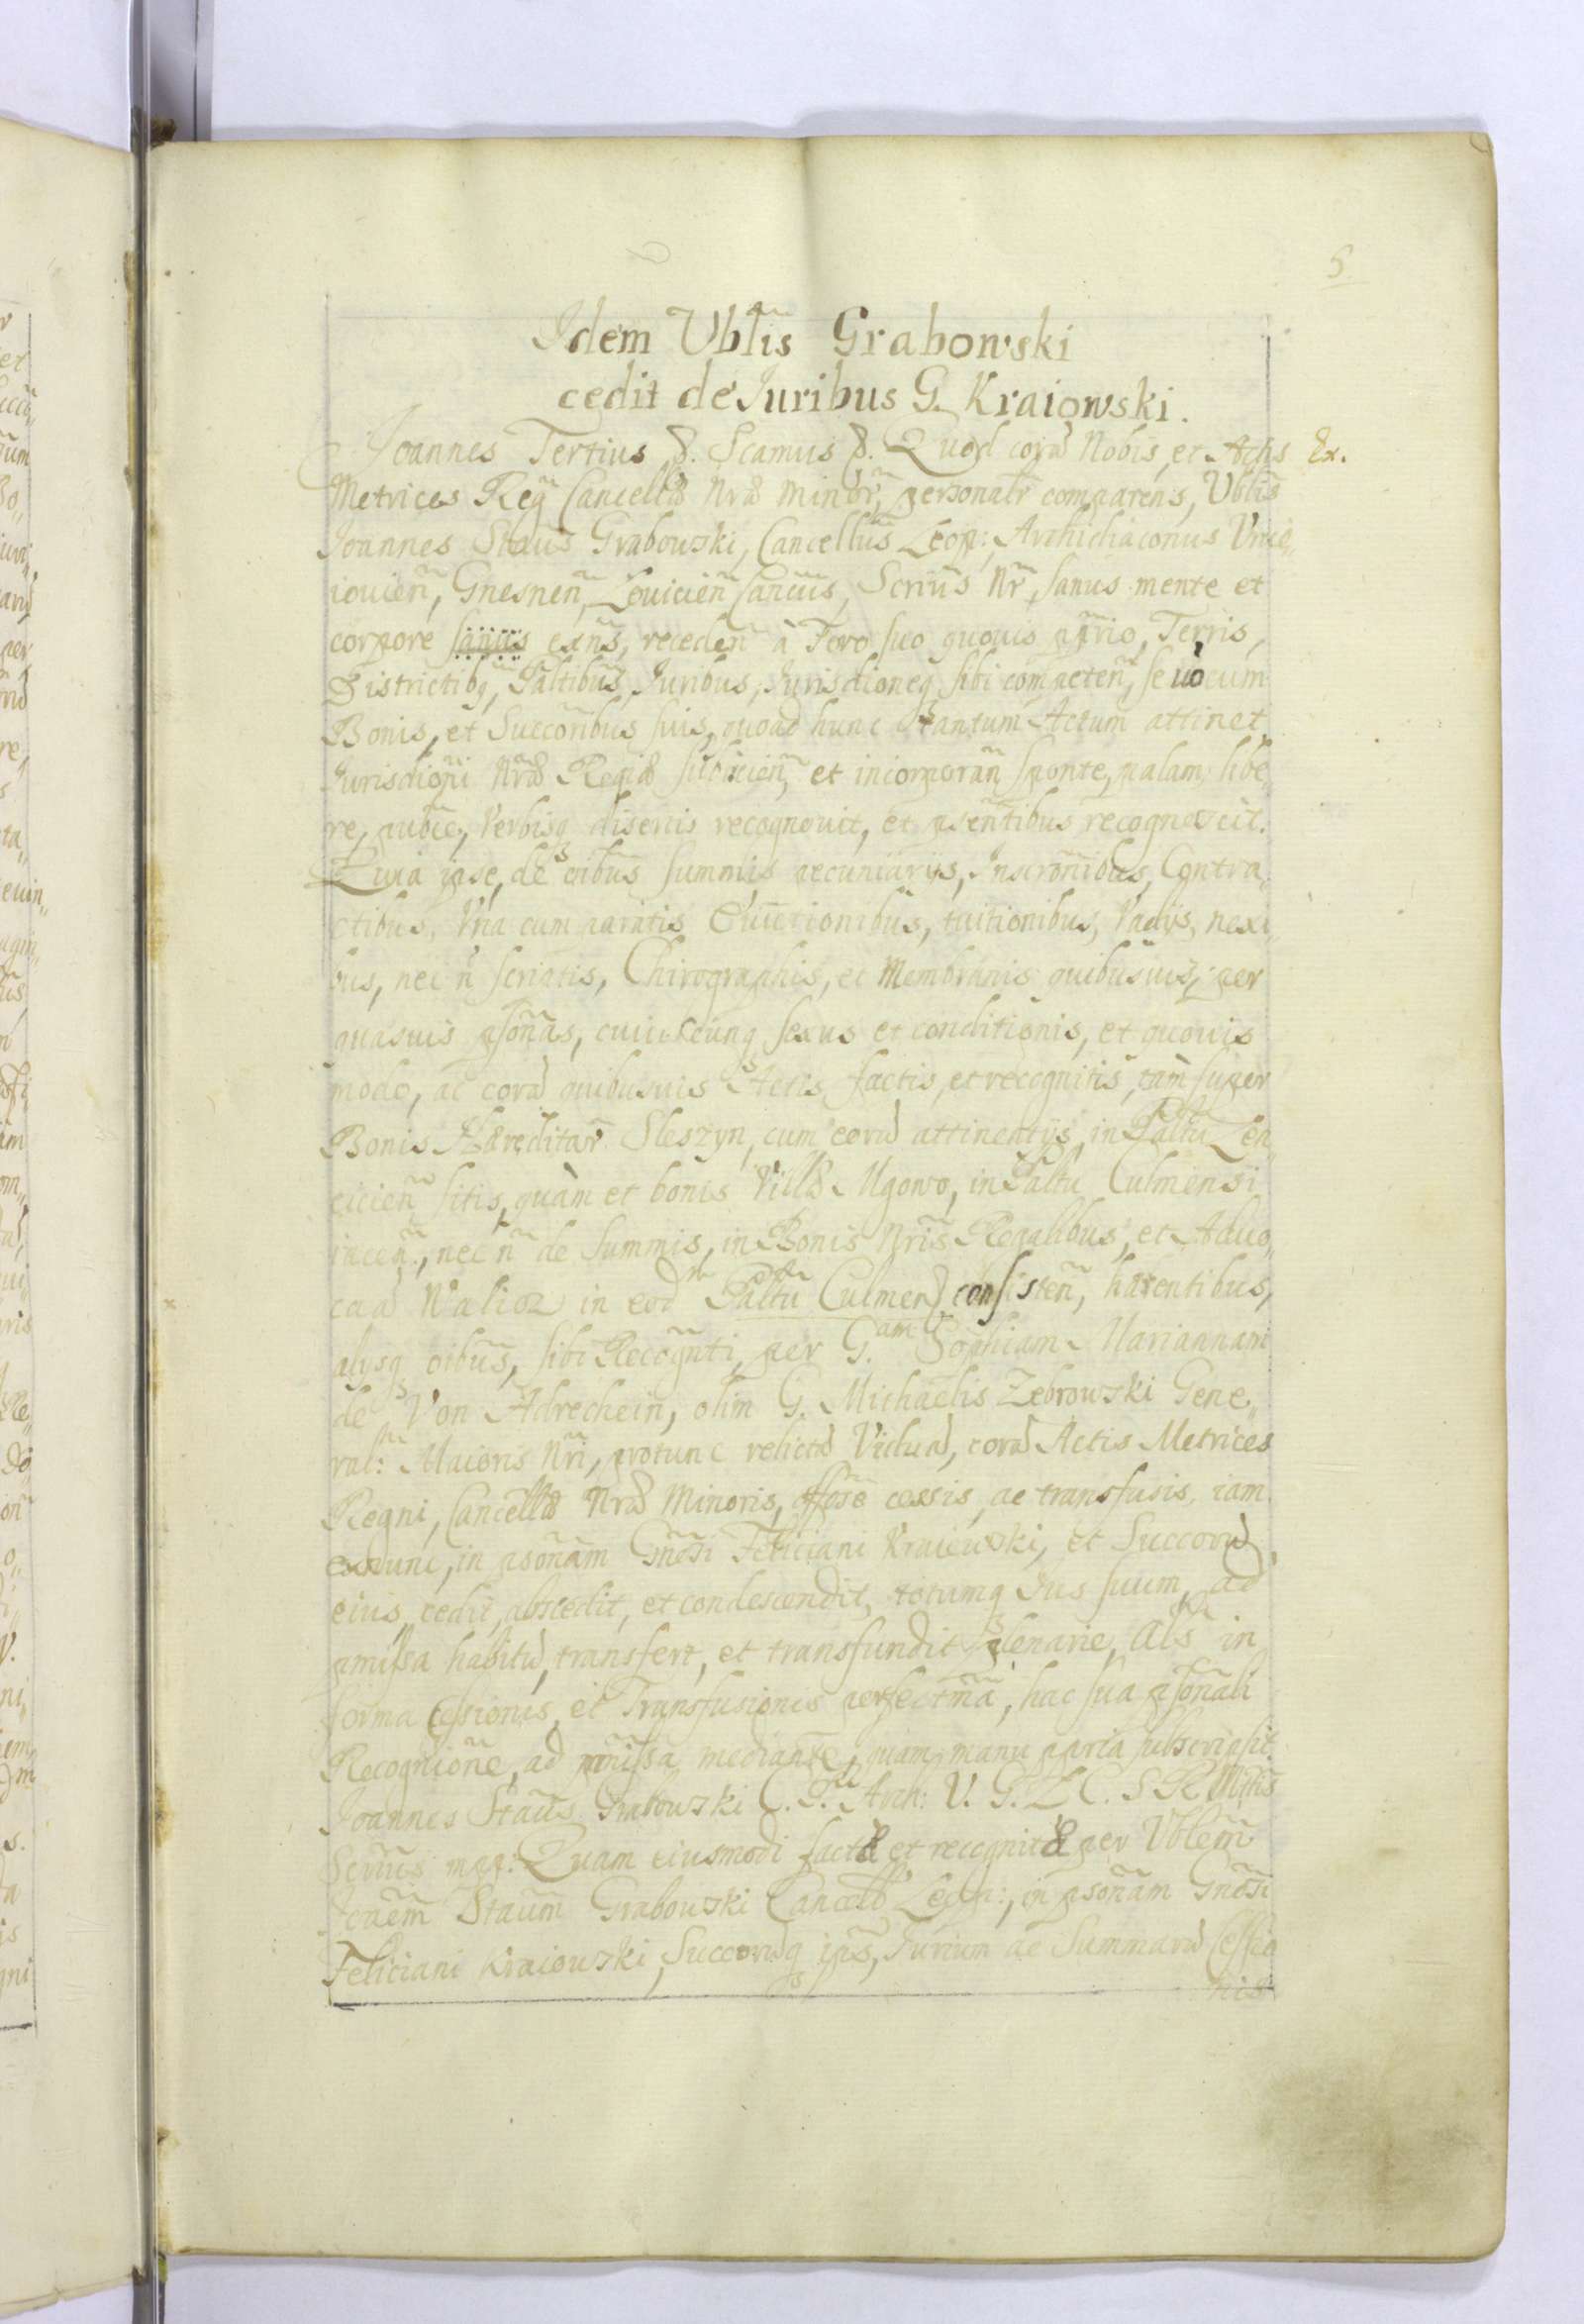 5
Idem Vbl̃is Grabowski
cedit de Iuribus G. Kraiowski.
Joannes Tertius &. Scamus &. Quod corã Nobis, et Actis Ex.
Metrices Regñ Cancellæ Nræ Minor̃, personalr̃ comparens, Vblis̃
Joannes Staus̃ Grabowski, Cancellus̃ Leop: Archidiaconus Vnie„
iouien̄, Gnesnen̄, Louicien̄ Canc̃us, Scrius̃ Nr̃, sanus mente et
corpore sanus exñs, recedeñ à Foro suo quouis ppr̃io, Terris,
Districtibq, Pal̃tibus, Iuribus, Iurisdioneq sibi competeñ, se uo cum
Bonis, et Succoribus̃ suis, quoad hunc tantum Actum attinet
Iurisdioñi Nræ Regiæ subicieñ, et incorporañ sponte, palam, libe„
re, publ̃ce, Verbisq disertis recognouit, et psẽntibus recognoscit.
Quia ipse, de oibus̃ summis pecuniarijs, Inscrõnibus, Contra„
ctibus, Vna cum paratis Euictionibus, tuitionibus, Vadijs, nexi„
bus, nec ñ scriptis, Chirographis, et Membranis quibusuis, per
quasuis psonãs, cuiuscũnq sexus et conditionis, et quouis
modo, ac corã quibusuis Actis factis, et recognitis, tàm super
Bonis Hæreditar̃ Sleszyn, cum eorũ attinentijs, in Pal̃tu Len„
cicieñ sitis, quàm et bonis Villæ Mgowo, in Pal̃tu Culmensi
iacen̄, nec ñ de summis, in Bonis Nr̃is Regalibus, et Aduo„
in eod Pal̃tu Culmen̄ consisteñ, hærentibus,
alijsq oibus̃, sibi Recogñti, per G.am Sophiam Mariannam
de Von Adrechein, olim G. Michaelis Zebrowski Gene„
ral: Maioris Nr̃i, protunc relictã Viduã, corã Actis Metrices
Regni, Cancellæ Nræ Minoris, cessis, ac transfusis, iam
exnunc, in psonãm Gnosĩ Feliciani Kraiewski, et Succorũ
eius, cedit, abscedit, et condescendit, totumq Ius suum, ad
pmissa habitũ, transfert, et transfundit plenarie, Als̃ in
forma Cessionis, et Transfusionis perfectm̃a, hac sua psonãli
Recogniõne, ad pmissa mediante, quam manu ppria subscripsit.
Joannes Staus̃ Grabowski C. P. Arch: V. G. L C. S R Mtis̃
Scrius̃ mpp: Quam eiusmodi factã et recognitã per Vblem̃
Joaem̃ Staum̃ Grabowski Cancell̃ Leop:, in psonãm Gnosĩ
Feliciani Kraiowski, Succorũq ipsĩus, Iurium ac Summarũ Cessio
nis